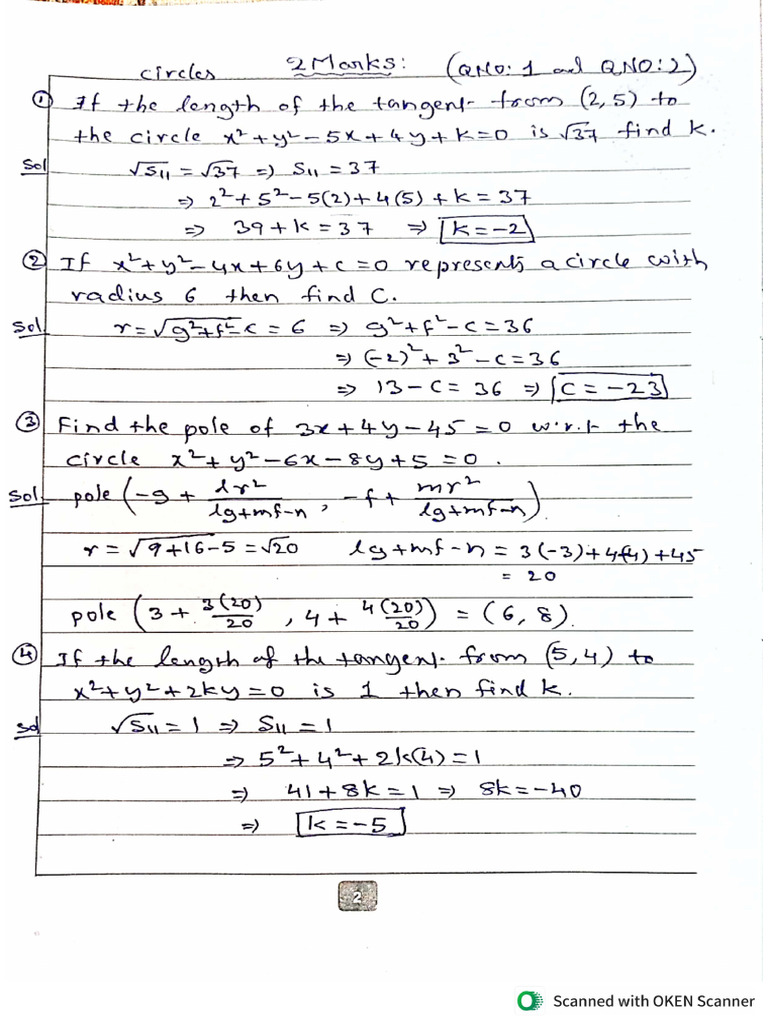 circles 2 Marks: (QNO: 1 and QNO: 2)
① If the length of the tangent from (2,5) to
the circle x²+y²-5x+4y+k=0 is √37 find k.
Sol √S₁₁ = √37 ⇒ S₁₁ = 37
⇒ 2²+5²-5(2)+4(5)+k = 37
⇒ 39+k = 37 ⇒ k = -2
② If x²+y²-4x+6y+c=0 represents a circle with
radius 6 then find C.
Sol r = √g²+f²-c = 6 ⇒ g²+f²-c = 36
⇒ (-2)²+3²-c = 36
⇒ 13-c = 36 ⇒ C = -23
③ Find the pole of 3x+4y-45=0 w.r.t the
circle x²+y²-6x-8y+5=0.
Sol pole (-g + lr²/lg+mf-n, -f + mr²/lg+mf-n)
r = √9+16-5 = √20 lg+mf-n = 3(-3)+4(-4)+45
= 20
pole (3 + 3(20)/20, 4 + 4(20)/20) = (6, 8)
④ If the length of the tangent from (5,4) to
x²+y²+2ky=0 is 1 then find k.
Sol √S₁₁ = 1 ⇒ S₁₁ = 1
⇒ 5²+4²+2k(4) = 1
⇒ 41+8k = 1 ⇒ 8k = -40
⇒ k = -5
2
Scanned with OKEN Scanner